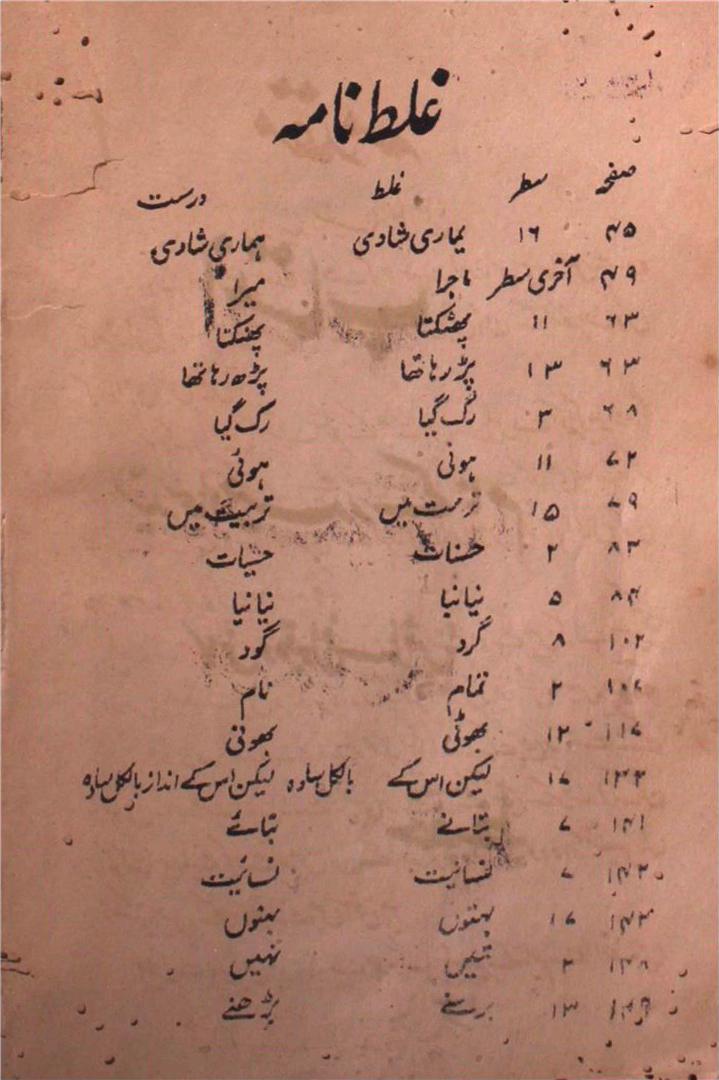 غلط نامہ
صفحہ سطر غلط درست
۴۵ ۱۶ یماری شادی ہماری شادی
۴۹ آخری سطر ماجرا میرا
۶۳ ۱۱ پھٹکتا پھنکتا
۶۳ ۱۳ پڑ رہا تھا پڑھ رہا تھا
۶۸ ۳ رگ گیا رک گیا
۷۲ ۱۱ ہونی ہوئی
۷۹ ۱۵ ترمت میں تربیت میں
۸۳ ۲ حسنات حسیات
۸۴ ۵ نیانبا نیانیا
۱۰۲ ۸ گرد گود
۱۰۷ ۲ تمام نام
۱۱۷ ۱۲ بھوٹی بھونی
۱۳۲ ۱۷ لیکن اس کے بالکل سادہ لیکن اس کے انداز بالکل سادہ
۱۴۱ ۷ بتانے بتائے
۱۴۲ ۷ لنسانیت نسائیت
۱۴۳ ۱۷ پہنوں بہنوں
۱۴۸ ۲ نہیں
۱۴۹ ۱۳ برسنے بڑھنے